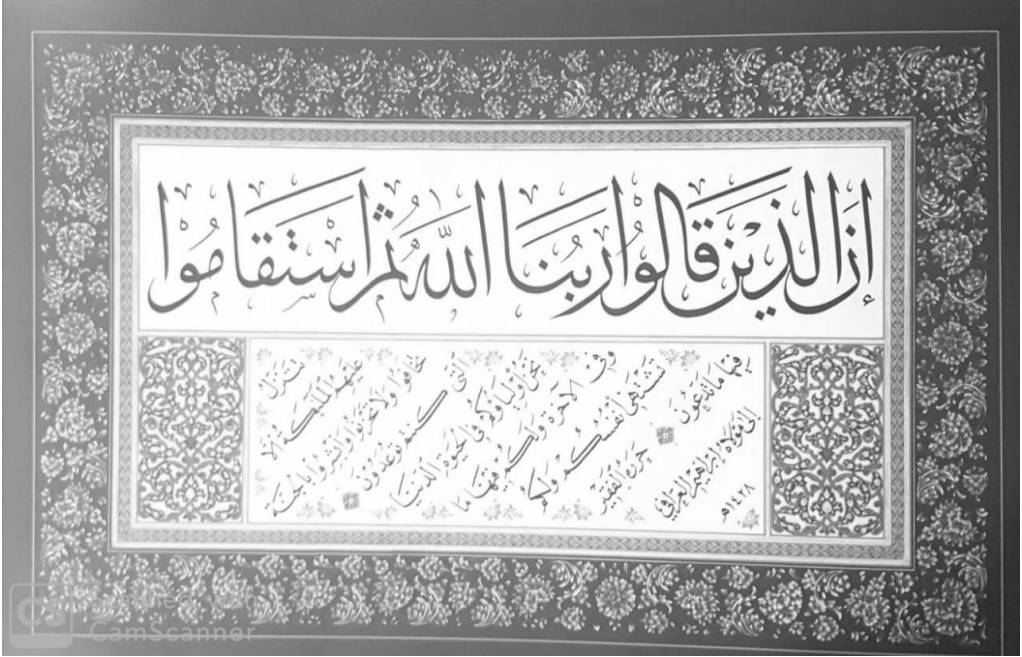 إِنَّ الَّذِينَ قَالُوا رَبُّنَا اللَّهُ ثُمَّ اسْتَقَامُوا
تتنزل
عليهم الملئكة ألا
تخافوا ولا تحزنوا وأبشروا بالجنة
التي كنتم توعدون
نحن أولياؤكم في الحيوة الدنيا
وفي الآخرة ولكم فيها ما
تشتهي أنفسكم ولكم
فيها ما تدعون
حرره الفقير
إلى مولاه إبراهيم العرافي
١٤٢٨هـ
CS
CamScanner